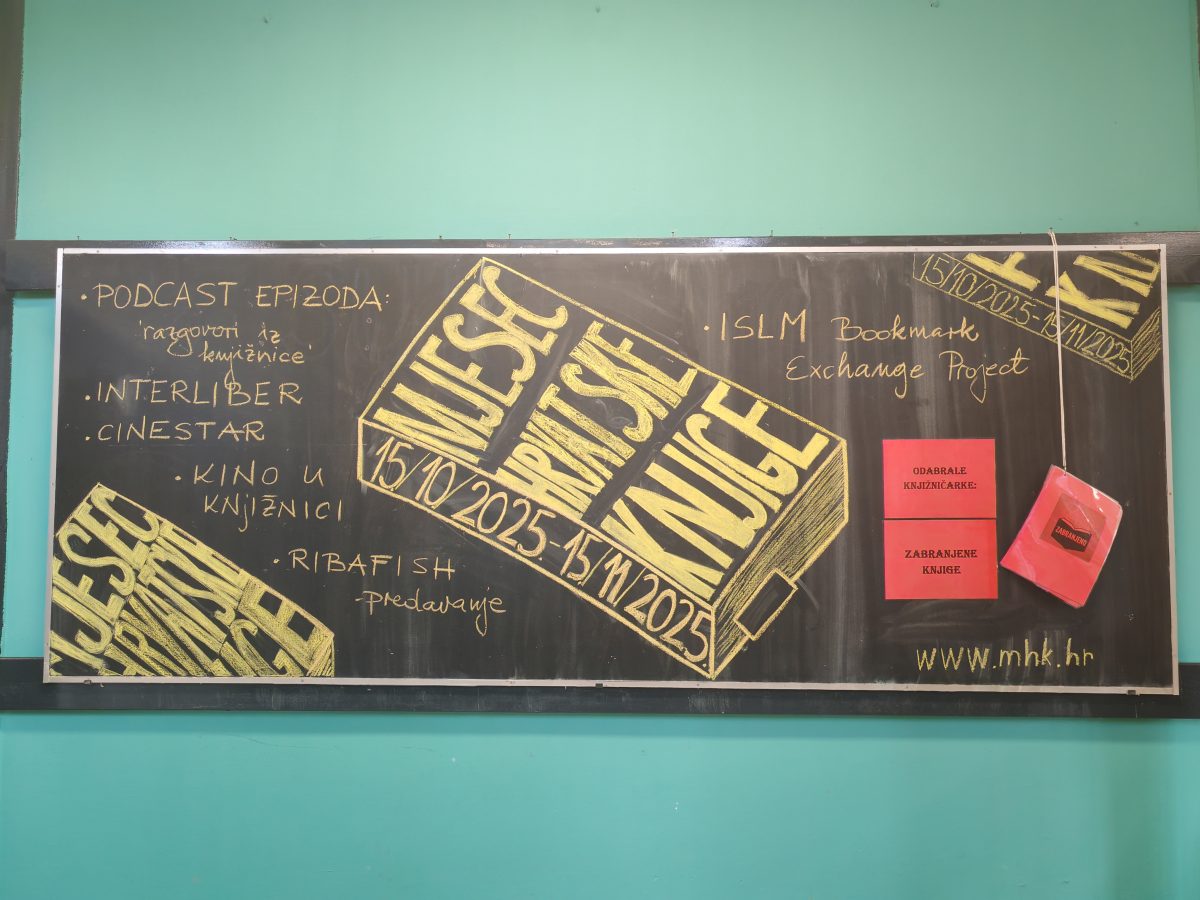 · PODCAST EPIZODA:
'razgovori iz
knjižnice'
· INTERLIBER
· CINESTAR
· KINO U
KNjIŽNICI
· RIBAFISH
- predavanje
MJESEC
HRVATSKE
KNJIGE
15/10/2025-15/11/2025.
MJESEC
HRVATSKE
KNJIGE
15/10/2025-15/11/2025.
· ISLM Bookmark
Exchange Project
ODABRALE
KNJIŽNIČARKE:
ZABRANJENE
KNJIGE
ZABRANJENO
www.mhk.hr